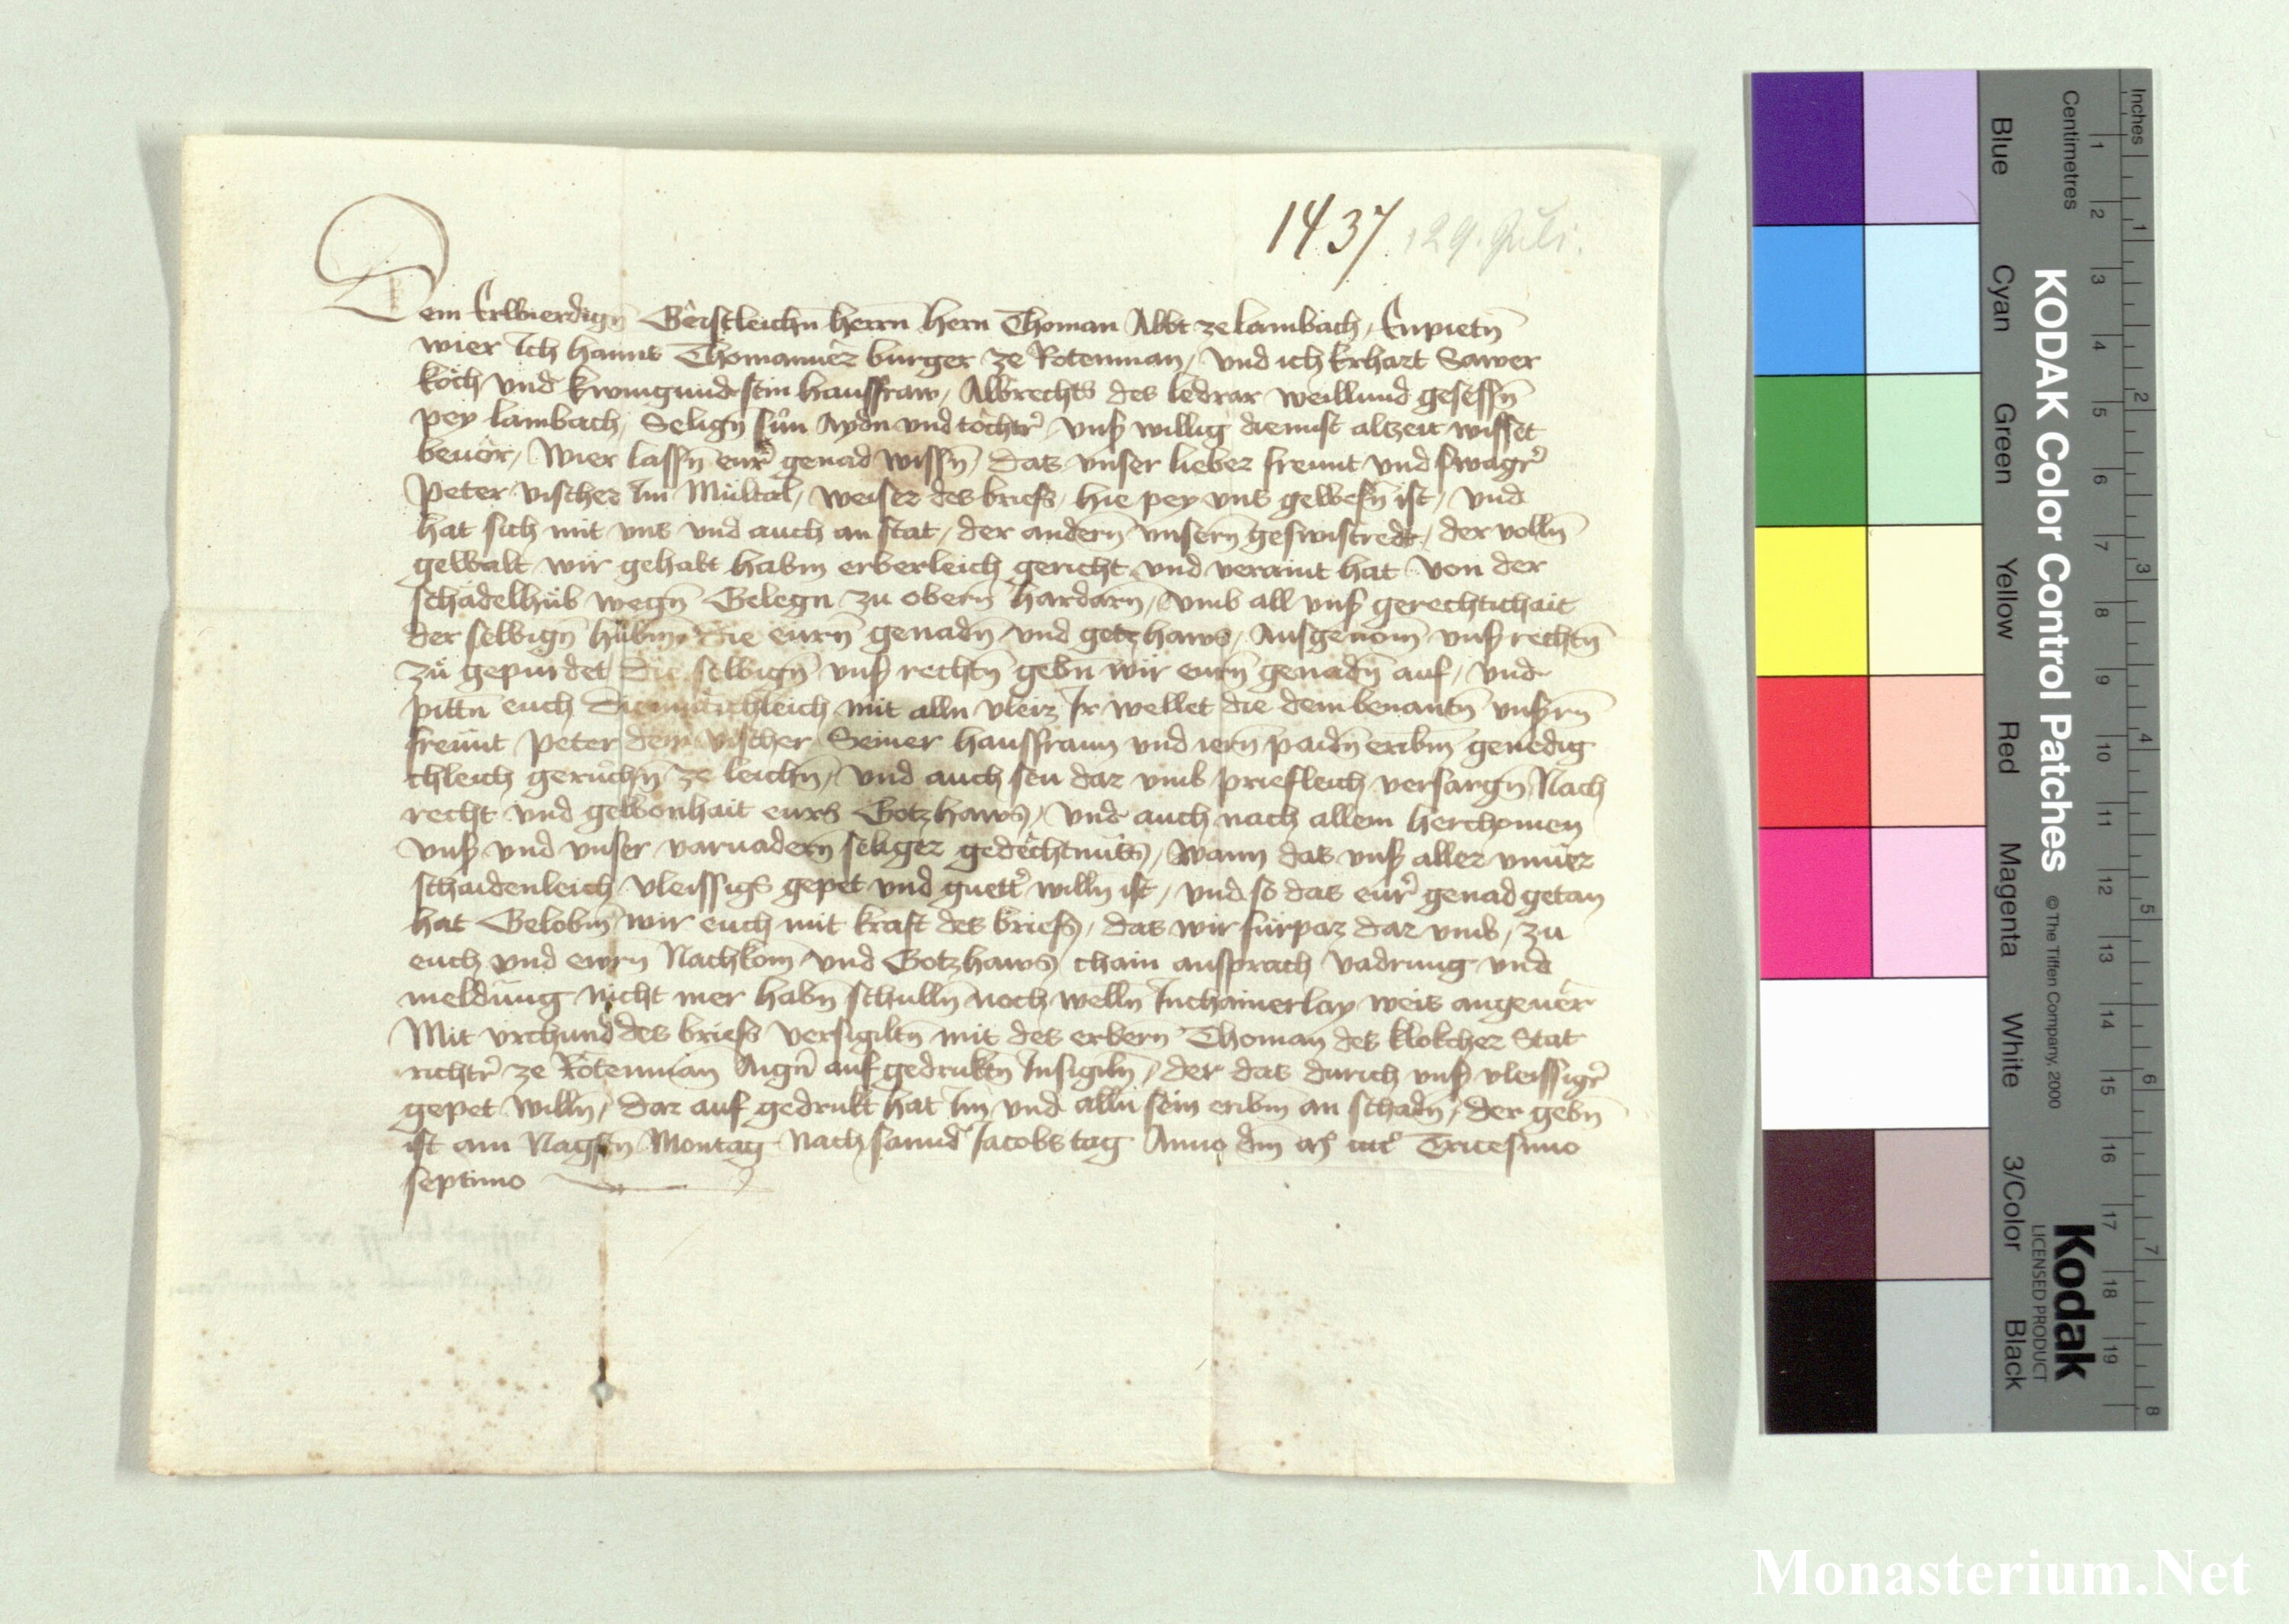 1437. 29. Juli.
Dem Erwierdign̄ Geistleichn̄ herrn hern Thoman Abbt ze lambach / Enpietn̄
wier Ich hanns Thomanuer burger ze Rotenman / vnd ich Erhart Sawer
koch vnd kwnigund sein hausfraw / Albrechts des ledrar weillund gesessn̄
pey lambach / Selign̄ sun Aydn vnd tochtr̄ / vnſs willig dienst alczeit wisset
beuor / Wier lassn̄ eur̄ genad wissn̄ / das vnser lieber freunt vnd swagr̄
Peter vischer Im Multal / weiser des briefs / hie pey vns gewesn̄ ist / vnd
hat sich mit vns vnd auch an stat / der andern̄ vnsern̄ geswistredt / der volln̄
gewalt wir gehabt habm erberleich gericht vnd veraint hat von der
schadelhub wegn̄ Gelegn zu obern̄ hardarn / vmb all vnſs gerechtichait
der selbign̄ hubm die eurn̄ genadn̄ vnd gotzhaws / Ausgenom̄ vnſs rechtn̄
zu gepurdet die selbign̄ vnſs rechtn̄ gebn wir eurn̄ genadn̄ auf / vnd
pittn̄ euch diemutichleich mit alln vleiz Ir wellet die dem benantn̄ vnſsrn̄
freunt Peter dem vischer Seiner hausfraun vnd iern̄ paidn̄ eribm̄ genedig
chleich geruchn̄ ze leichn̄ / vnd auch seu dar vmb priefleich versargn̄ Nach
recht vnd gewonhait eurs Gotzhaws / vnd auch nach allem herchomen
vnſs vnd vnser varuadern̄ seliger gedechtnuss / Wann das vnſs aller vnuer
schaidenleich vleissigs gepet vnd guettr̄ willn̄ ist / vnd so das eur̄ genad getan
hat Gelobm̄ wir euch mit kraft des briefs / das wir furpaz dar vmb / zu
euch vnd ewrn̄ Nachkom̄ vnd Gotzhaws chain ansprach vadrung vnd
meldung nicht mer habn̄ schulln̄ noch welln̄ Inchainerlay weis angeuer
Mit vrchund des briefs versigiltn̄ mit des erbern Thoman des klokcher Stat
richtr̄ ze Rotenman̄ Aign̄ aufgedruktn̄ Insigiln̄ / der das durich vnſs vleissigr̄
gepet willn̄ / dar auf gedrukt hat Im̄ vnd alln sein eribm̄ an schadn̄ / der gebn̄
ist am Nagstn̄ Montag Nach sannd Jacobs tag Anno dm̄ Tricesimo
septimo
Blue
Cyan
Green
Yellow
Red
Magenta
White
3/Color
Black
KODAK Color Control Patches © The Tiffen Company, 2000
Kodak
LICENSED PRODUCT
Centimetres 1 2 3 4 5 6 7 8 9 10 11 12 13 14 15 16 17 18 19
Inches 1 2 3 4 5 6 7 8
Monasterium.Net